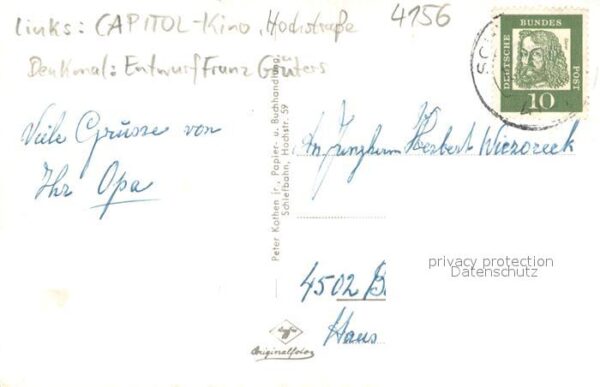 Links: CAPITOL-Kino, Hochstraße
4156
Denkmal: Entwurf Franz Güters
DEUTSCHE BUNDES POST
Dürer
10
SC
4
Viele Grüsse von
Ihr Opa
Peter Kothen jr., Papier- u. Buchhandlung,
Schiefbahn, Hochstr. 59
An Jungherrn Herbert Wiezoreck
4502 B.
Haus
privacy protection
Datenschutz
Agfa
Originalfoto